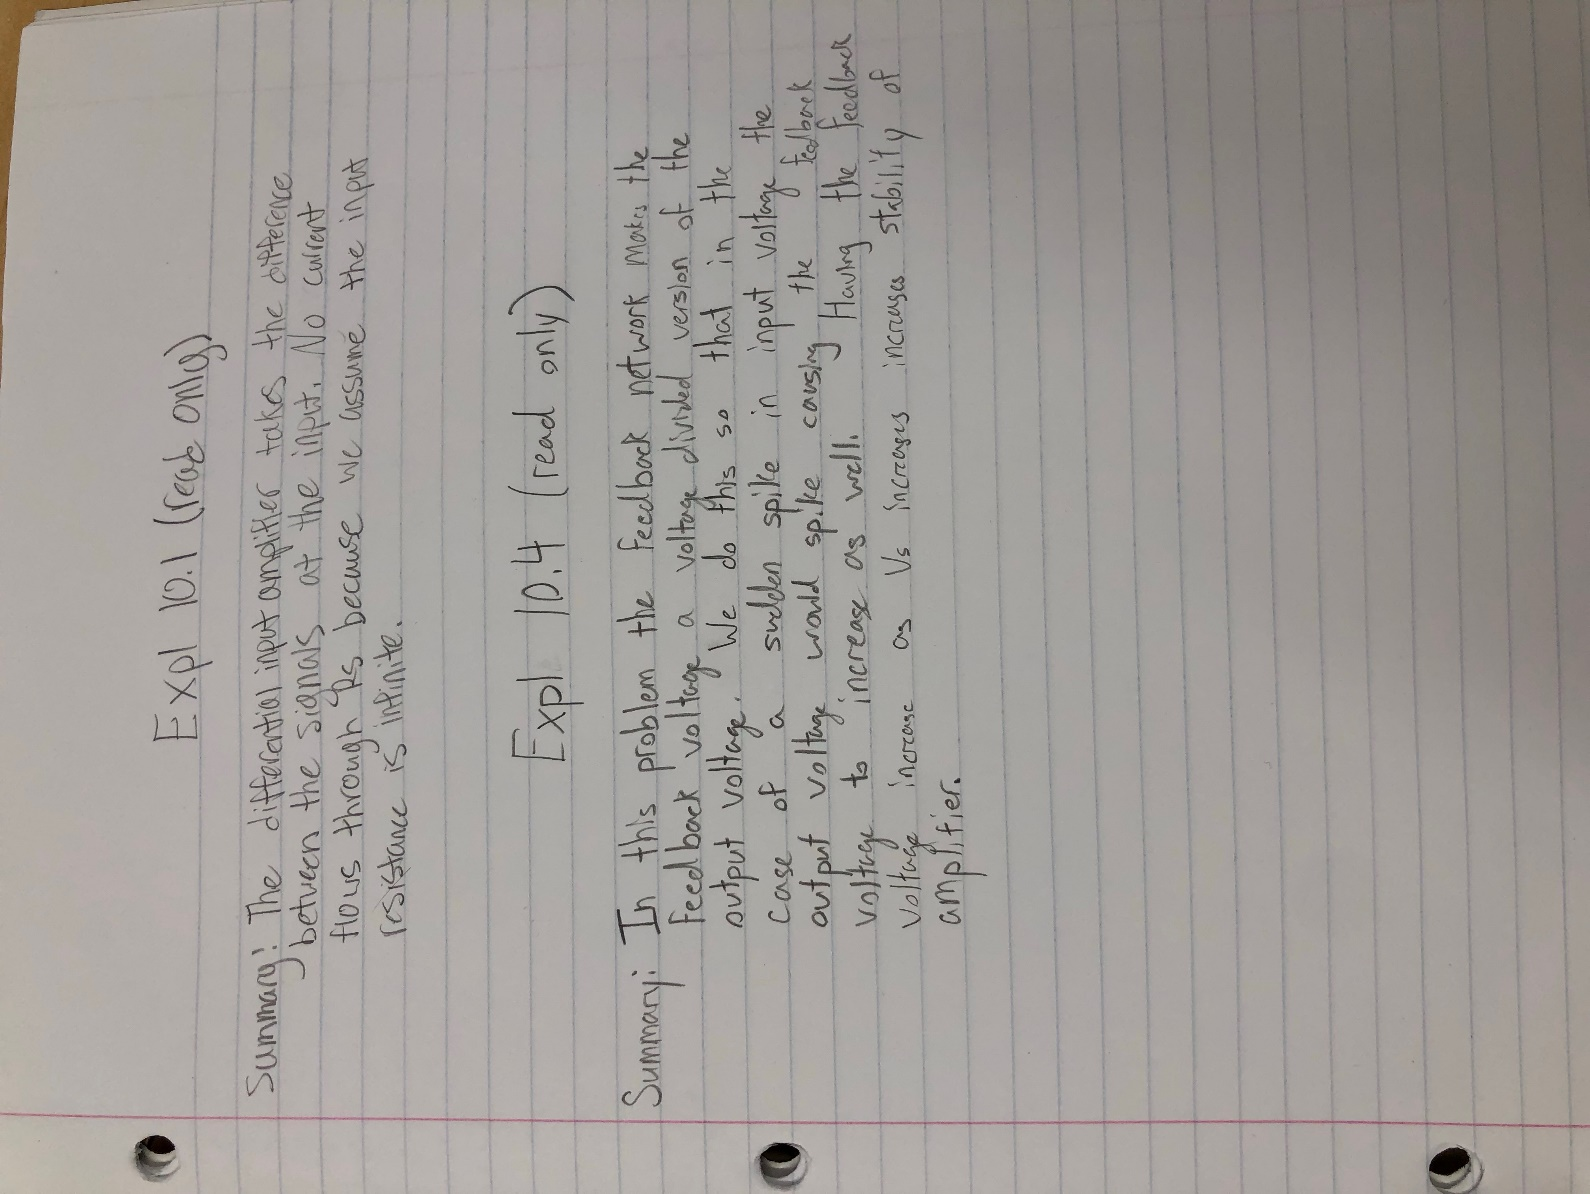 Expl 10.1 (read only)
Summary: The differential input amplifier takes the difference
between the signals at the input. No current
flows through Rs because we assume the input
resistance is infinite.
Expl 10.4 (read only)
Summary: In this problem the feedback network makes the
feedback voltage a voltage divided version of the
output voltage. We do this so that in the
case of a sudden spike in input voltage the
output voltage would spike causing the feedback
voltage to increase as well. Having the feedback
voltage increase as Vs increases increases stability of
amplifier.